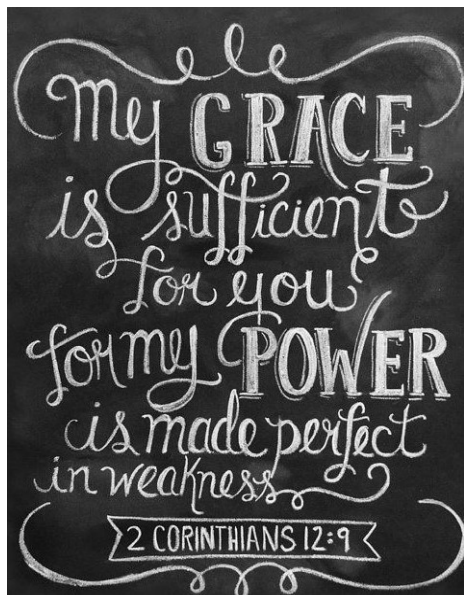 my GRACE
is sufficient
for you
for my POWER
is made perfect
in weakness
2 CORINTHIANS 12:9